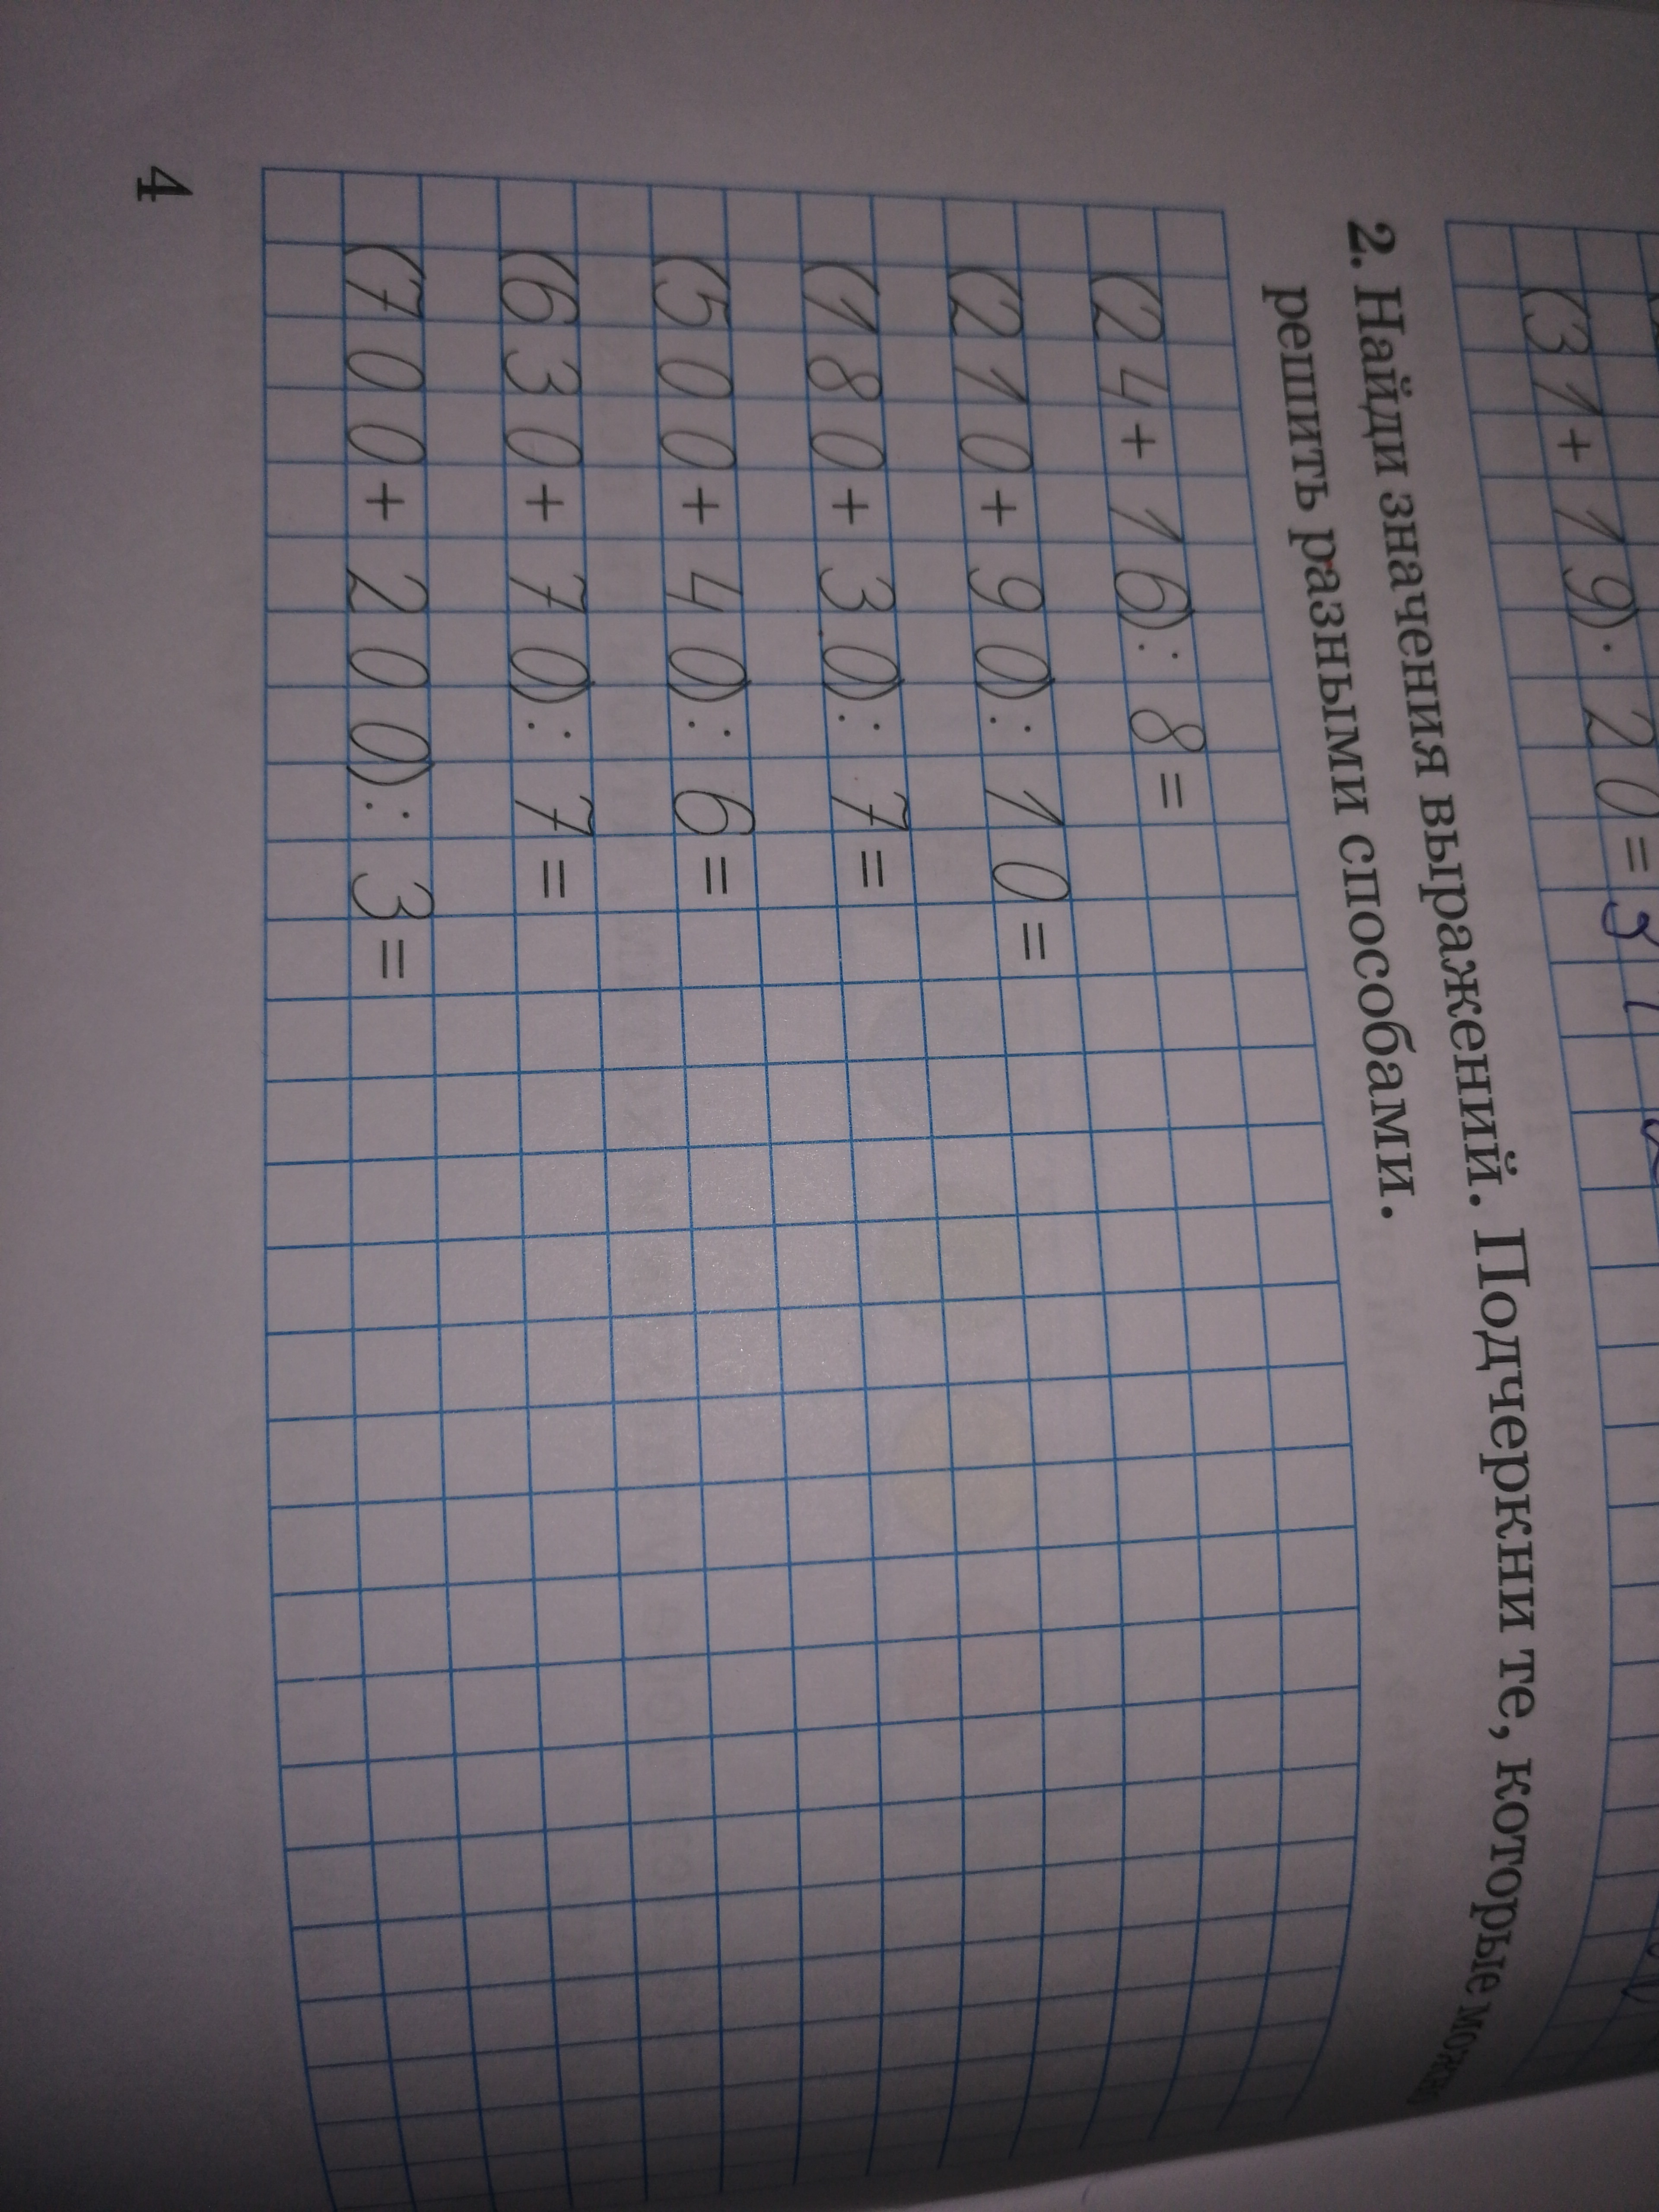 (31+19)·20=
2. Найди значения выражений. Подчеркни те, которые можно
решить разными способами.
(24+16):8=
(210+90):10=
(180+30):7=
(500+40):6=
(630+70):7=
(700+200):3=
4